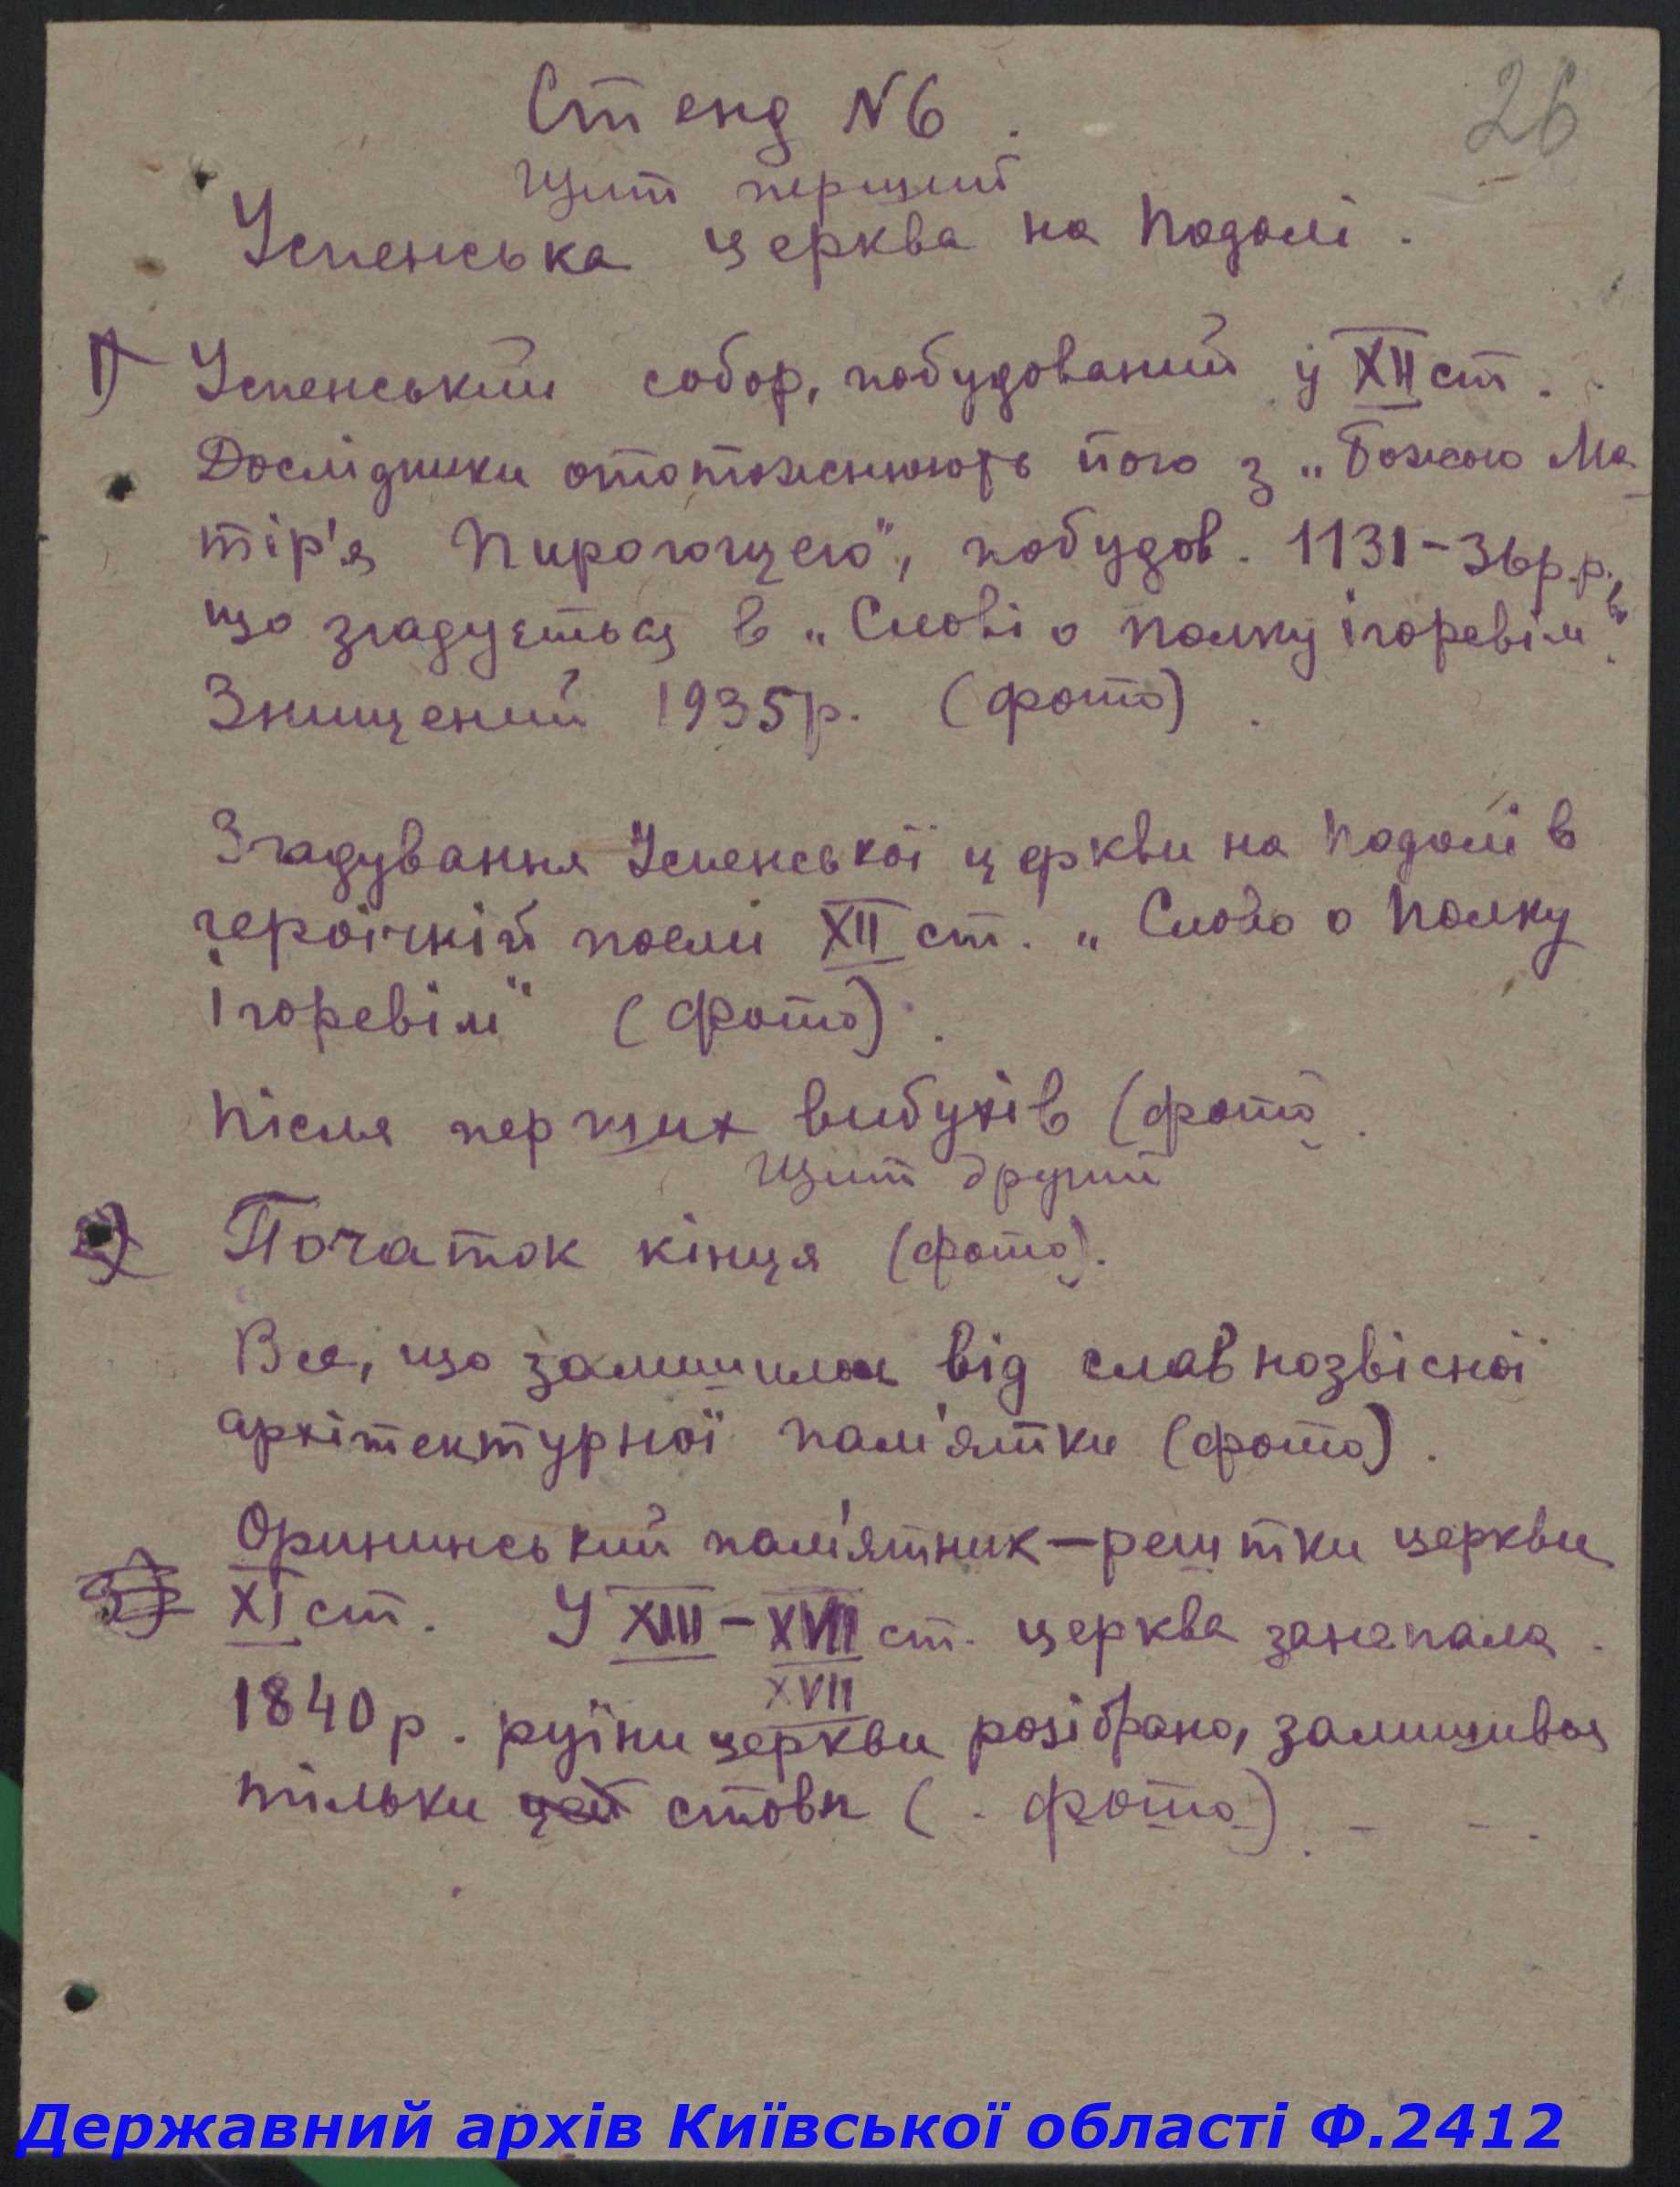 26
Стенд N6.
Щит перший
Успенська церква на Подолі.
1) Успенський собор, побудований у XII ст.
Дослідники ототожнюють його з „Божою Ма-
тір'я Пирогощею", побудов. 1131-36 р.р.,
що згадується в „Слові о полку ігоревім".
Знищений 1935р. (фото).
Згадування Успенської церкви на Подолі в
героічній поемі XII ст. „Слово о полку
ігоревім" (фото).
Після перших вибухів (фото).
Щит другий
2) Початок кінця (фото).
Все, що залишилось від славнозвісної
архітектурної пам'ятки (фото).
Орининський пам'ятник — рештки церкви
3) XI ст. У XIII - XVII ст. церква занепала.
XVII
1840 р. руїни церкви розібрано, залишився
тільки цей стовп (. фото).
Державний архів Київської області Ф.2412